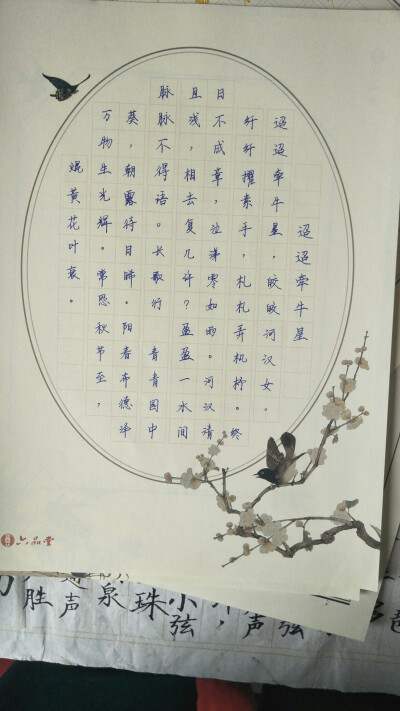 迢迢牵牛星
迢迢牵牛星，皎皎河汉女。
纤纤擢素手，札札弄机杼。终
日不成章，泣涕零如雨。河汉清
且浅，相去复几许？盈盈一水间
脉脉不得语。长歌行 青青园中
葵，朝露待日晞。阳春布德泽
万物生光辉。常恐秋节至，
焜黄花叶衰。
六品堂
弦
声
小弦
珠
泉
声
胜